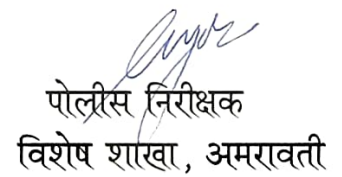 पोलीस निरीक्षक
विशेष शाखा, अमरावती